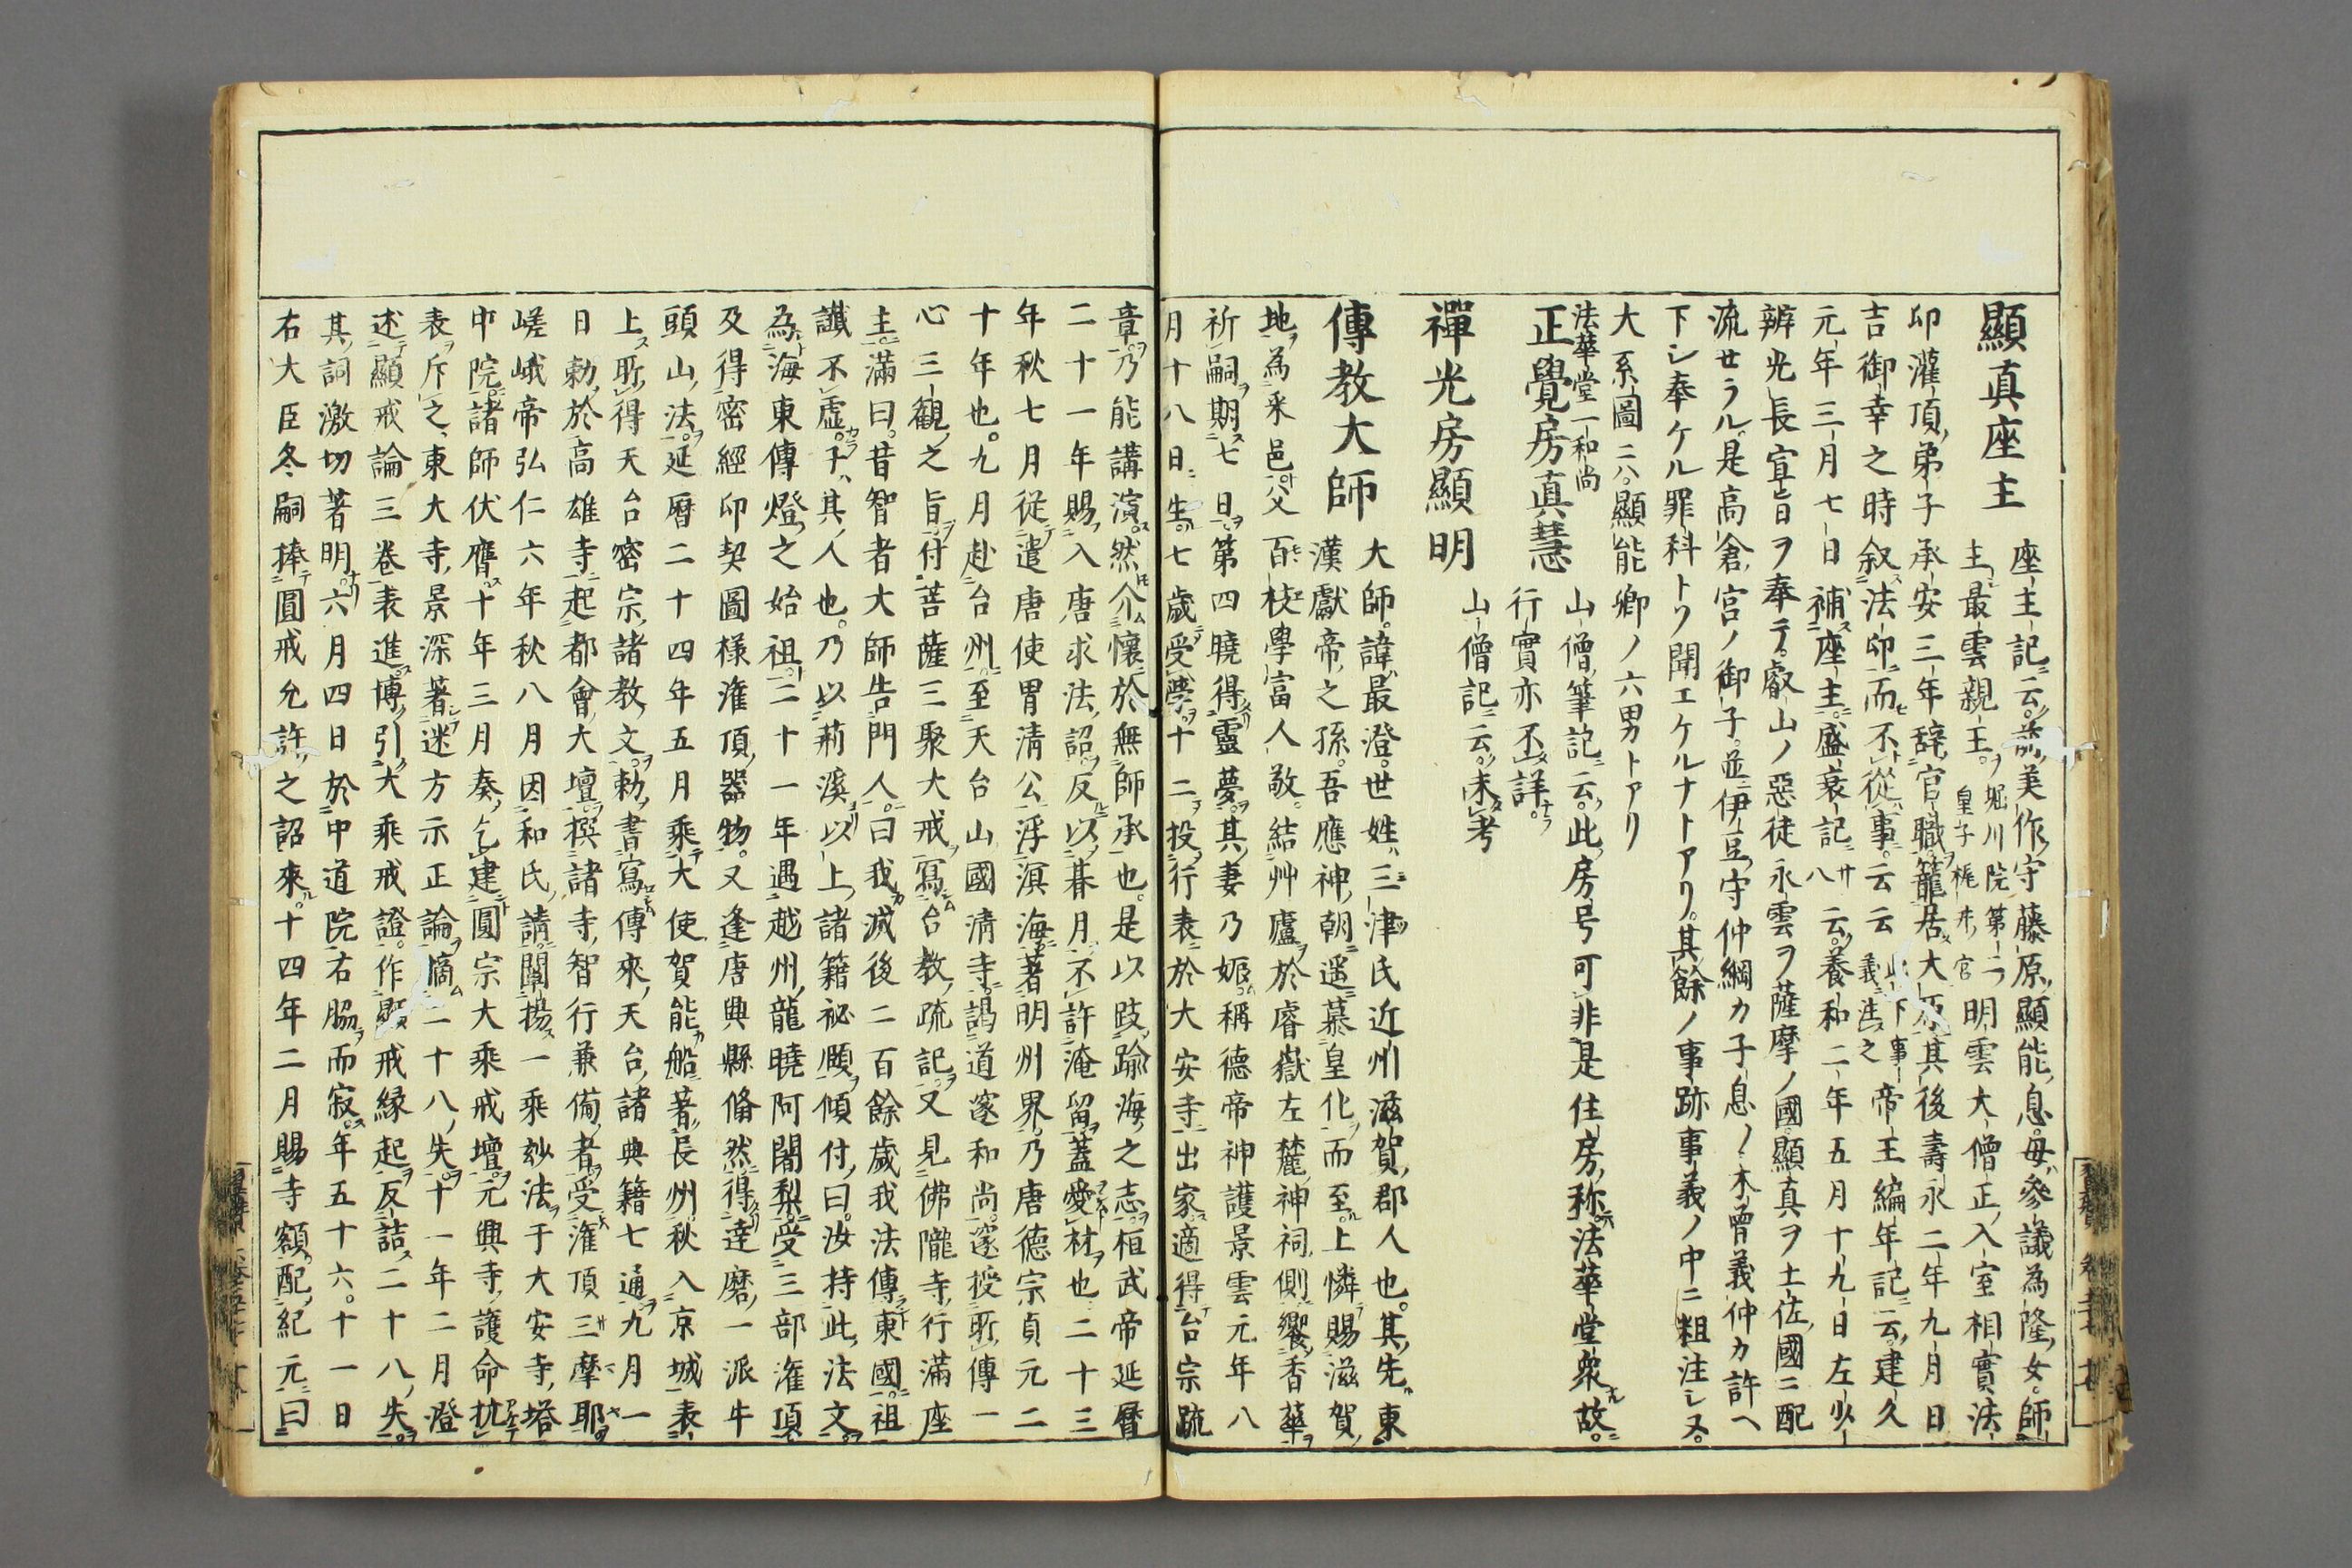 顯真座主
座主記云前美作守藤原顯能息母參議為隆女師
主最雲親王堀川院第二皇子梶井宮明雲大僧正入室相實法
印灌頂弟子承安三年辞官職籠居大原其後壽永二年九月日
吉御幸之時叙法印而不從事云云此下事義注之帝王編年記云建久
元年三月七日補座主盛衰記廿八云養和二年五月十九日左少
辨光長宣旨ヲ奉テ叡山ノ惡徒永雲ヲ薩摩ノ國顯真ヲ土佐國ニ配
流セラル是高倉宮ノ御子並伊豆守仲綱カ子息ノ木曾義仲カ許ヘ
下シ奉ケル罪科トソ聞エケルナトアリ其餘ノ事跡事義ノ中ニ粗注シヌ
大系圖二八顯能卿ノ六男トアリ
法華堂一和尚
正覺房真慧
山僧筆記云此房号可非是住房称法華堂衆故
行實亦不詳
禪光房顯明
山僧記云未考
傳教大師
大師諱最澄世姓三津氏近州滋賀郡人也其先東
漢獻帝之孫吾應神朝遥慕皇化而至上憐賜滋賀
地為釆邑父百枝學富人敬結艸廬於睿嶽左麓神祠側饗香華
祈嗣期七日第四曉得靈夢其妻乃娠稱德帝神護景雲元年八
月十八日生七歲受學十二投行表於大安寺出家適得台宗疏
章乃能講演然介懷於無師承也是以跂踰海之志桓武帝延曆
二十一年賜入唐求法詔反以暮月不許淹留蓋愛材也二十三
年秋七月從遣唐使胃清公浮溟海著明州界乃唐德宗貞元二
十年也九月赴台州至天台山國清寺謁道邃和尚邃授所傳一
心三觀之旨付菩薩三聚大戒寫台教疏記又見佛隴寺行滿座
主滿曰昔智者大師告門人曰我滅後二百餘歲我法傳東國祖
讖不虛子其人也乃以荊溪以上諸籍祕賾傾付曰汝持此法文
為海東傳燈之始祖二十一年遇越州龍曉阿闍梨受三部灌頂
及得密經印契圖様灌頂器物又逢唐興縣翛然得達磨一派牛
頭山法延曆二十四年五月乘大使賀能船著長州秋入京城表
上所得天台密宗諸教文勅書寫傳來天台諸典籍七通九月一
日勅於高雄寺起都會大壇撰諸寺智行兼備者受灌頂三摩耶
嵯峨帝弘仁六年秋八月因和氏請闡揚一乘玅法于大安寺塔
中院諸師伏膺十年三月奏乞建圓宗大乘戒壇元興寺護命抗
表斥之東大寺景深著迷方示正論摘二十八失十一年二月澄
述顯戒論三卷表進博引大乘戒證作顯戒縁起反詰二十八失
其詞激切著明六月四日於中道院右脇而寂年五十六十一日
右大臣冬嗣捧圓戒允許之詔來十四年二月賜寺額配紀元曰